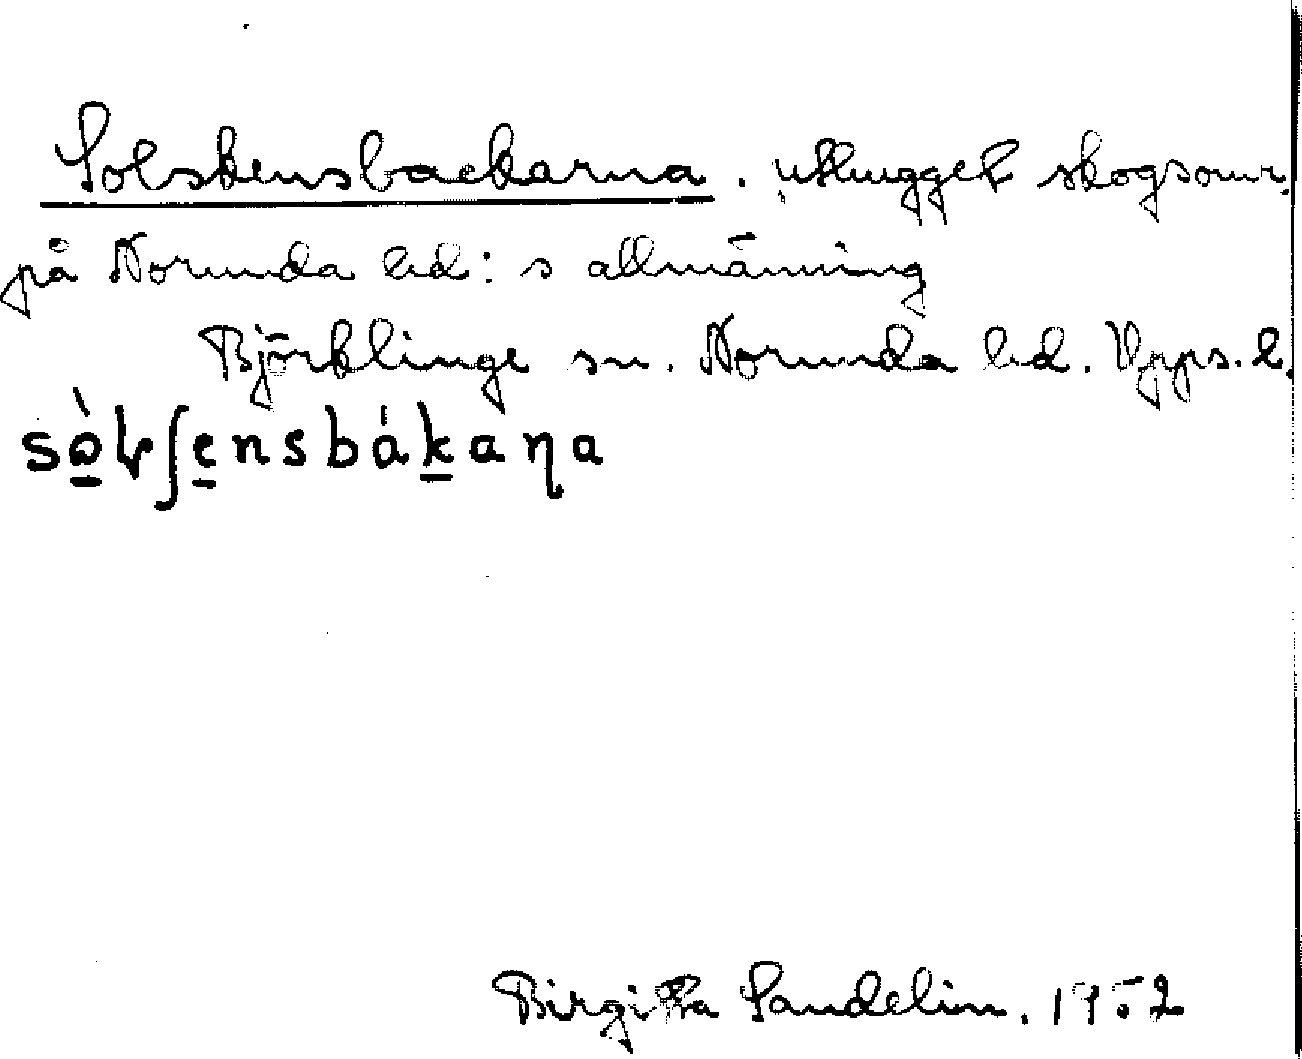 Solskensbackarna. uthugget skogsomr.
på Norunda hd:s allmänning
Björklinge sn. Norunda hd. Upps. l.
sò̠lʃe̠nsbák̠aɳa
Birgitta Sandelin. 1952